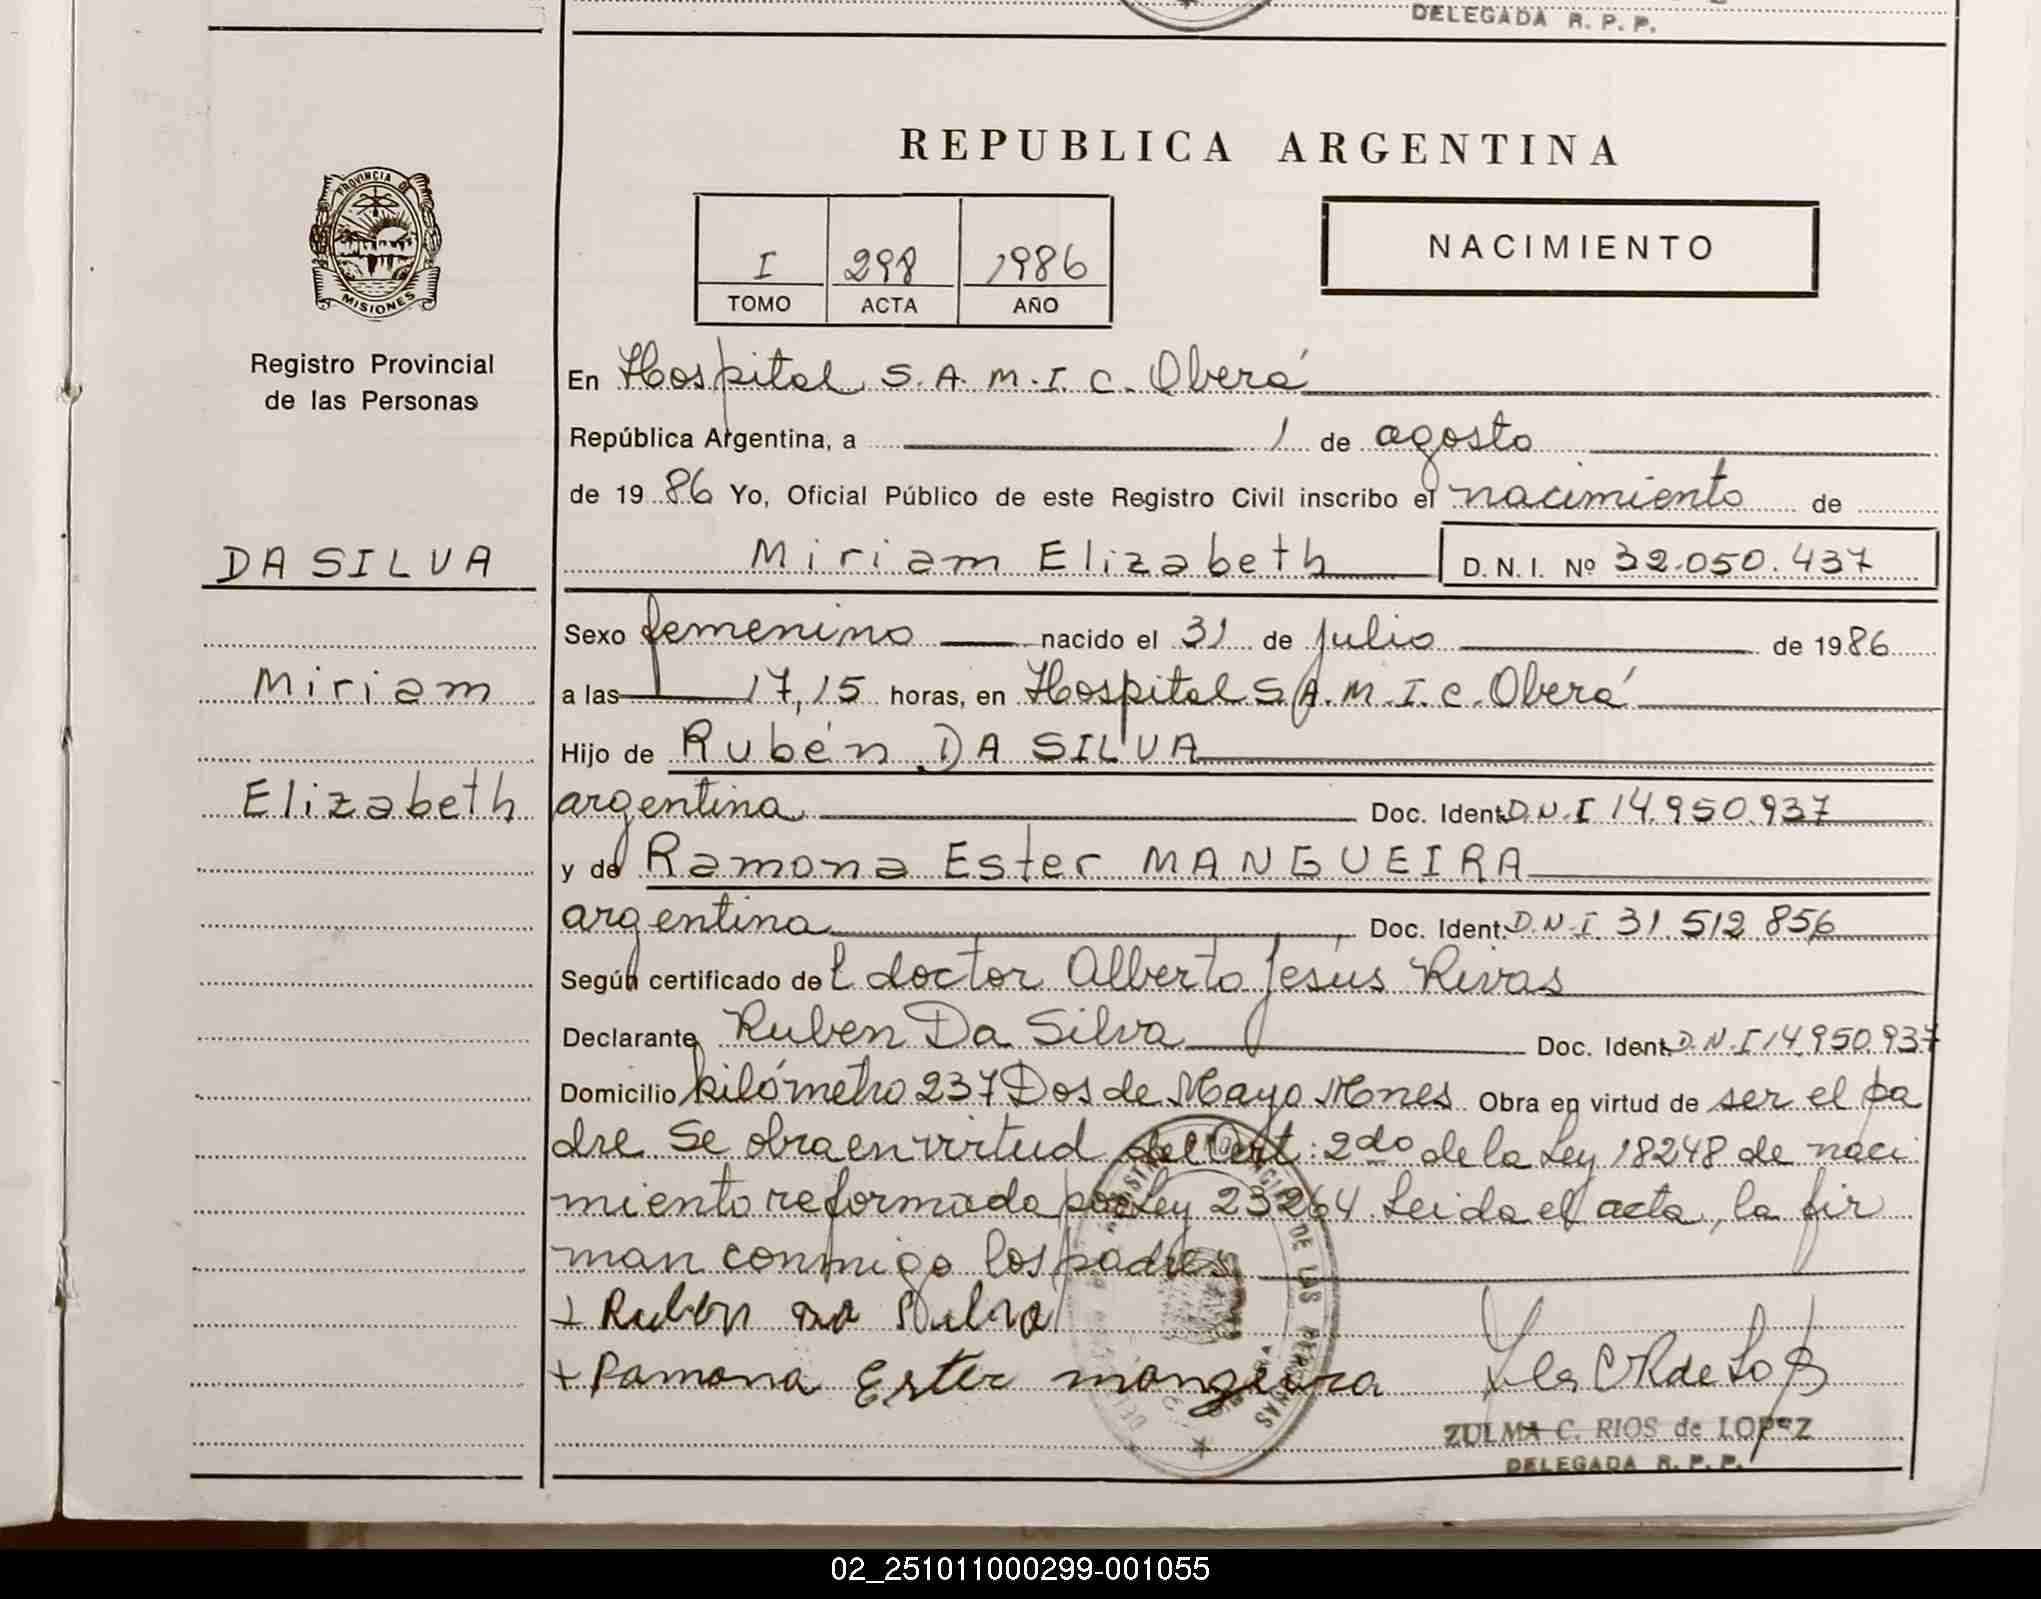 DELEGADA R. P. P.
REPUBLICA ARGENTINA
PROVINCIA DE
MISIONES
Registro Provincial
de las Personas
I 298 1986
TOMO ACTA AÑO
NACIMIENTO
En Hospital S.A.M.I.C. Oberá
República Argentina, a 1 de agosto
de 1986 Yo, Oficial Público de este Registro Civil inscribo el nacimiento de
DA SILVA
Miriam Elizabeth D.N.I. Nº 32.050.437
Sexo femenino nacido el 31 de julio de 1986
Miriam
a las 17,15 horas, en Hospital S.A.M.I.C. Oberá
Hijo de Rubén DA SILVA
Elizabeth
argentina Doc. Ident. D.N.I 14.950.937
y de Ramona Ester MANGUEIRA
argentina, Doc. Ident. D.N.I. 31.512.856
Según certificado del doctor Alberto Jesús Rivas
Declarante Ruben Da Silva Doc. Ident. D.N.I 14.950.937
Domicilio kilómetro 237 Dos de Mayo Mnes Obra en virtud de ser el pa
dre. Se obra en virtud del Art: 2do de la Ley 18248 de naci
miento reformada por Ley 23264. Leida el acta, la fir
man conmigo los padres
+ Ruben Da Silva
+ Ramona Ester mangeira
ZULMA C. RIOS de LOPEZ
DELEGADA R. P. P.
02_251011000299-001055